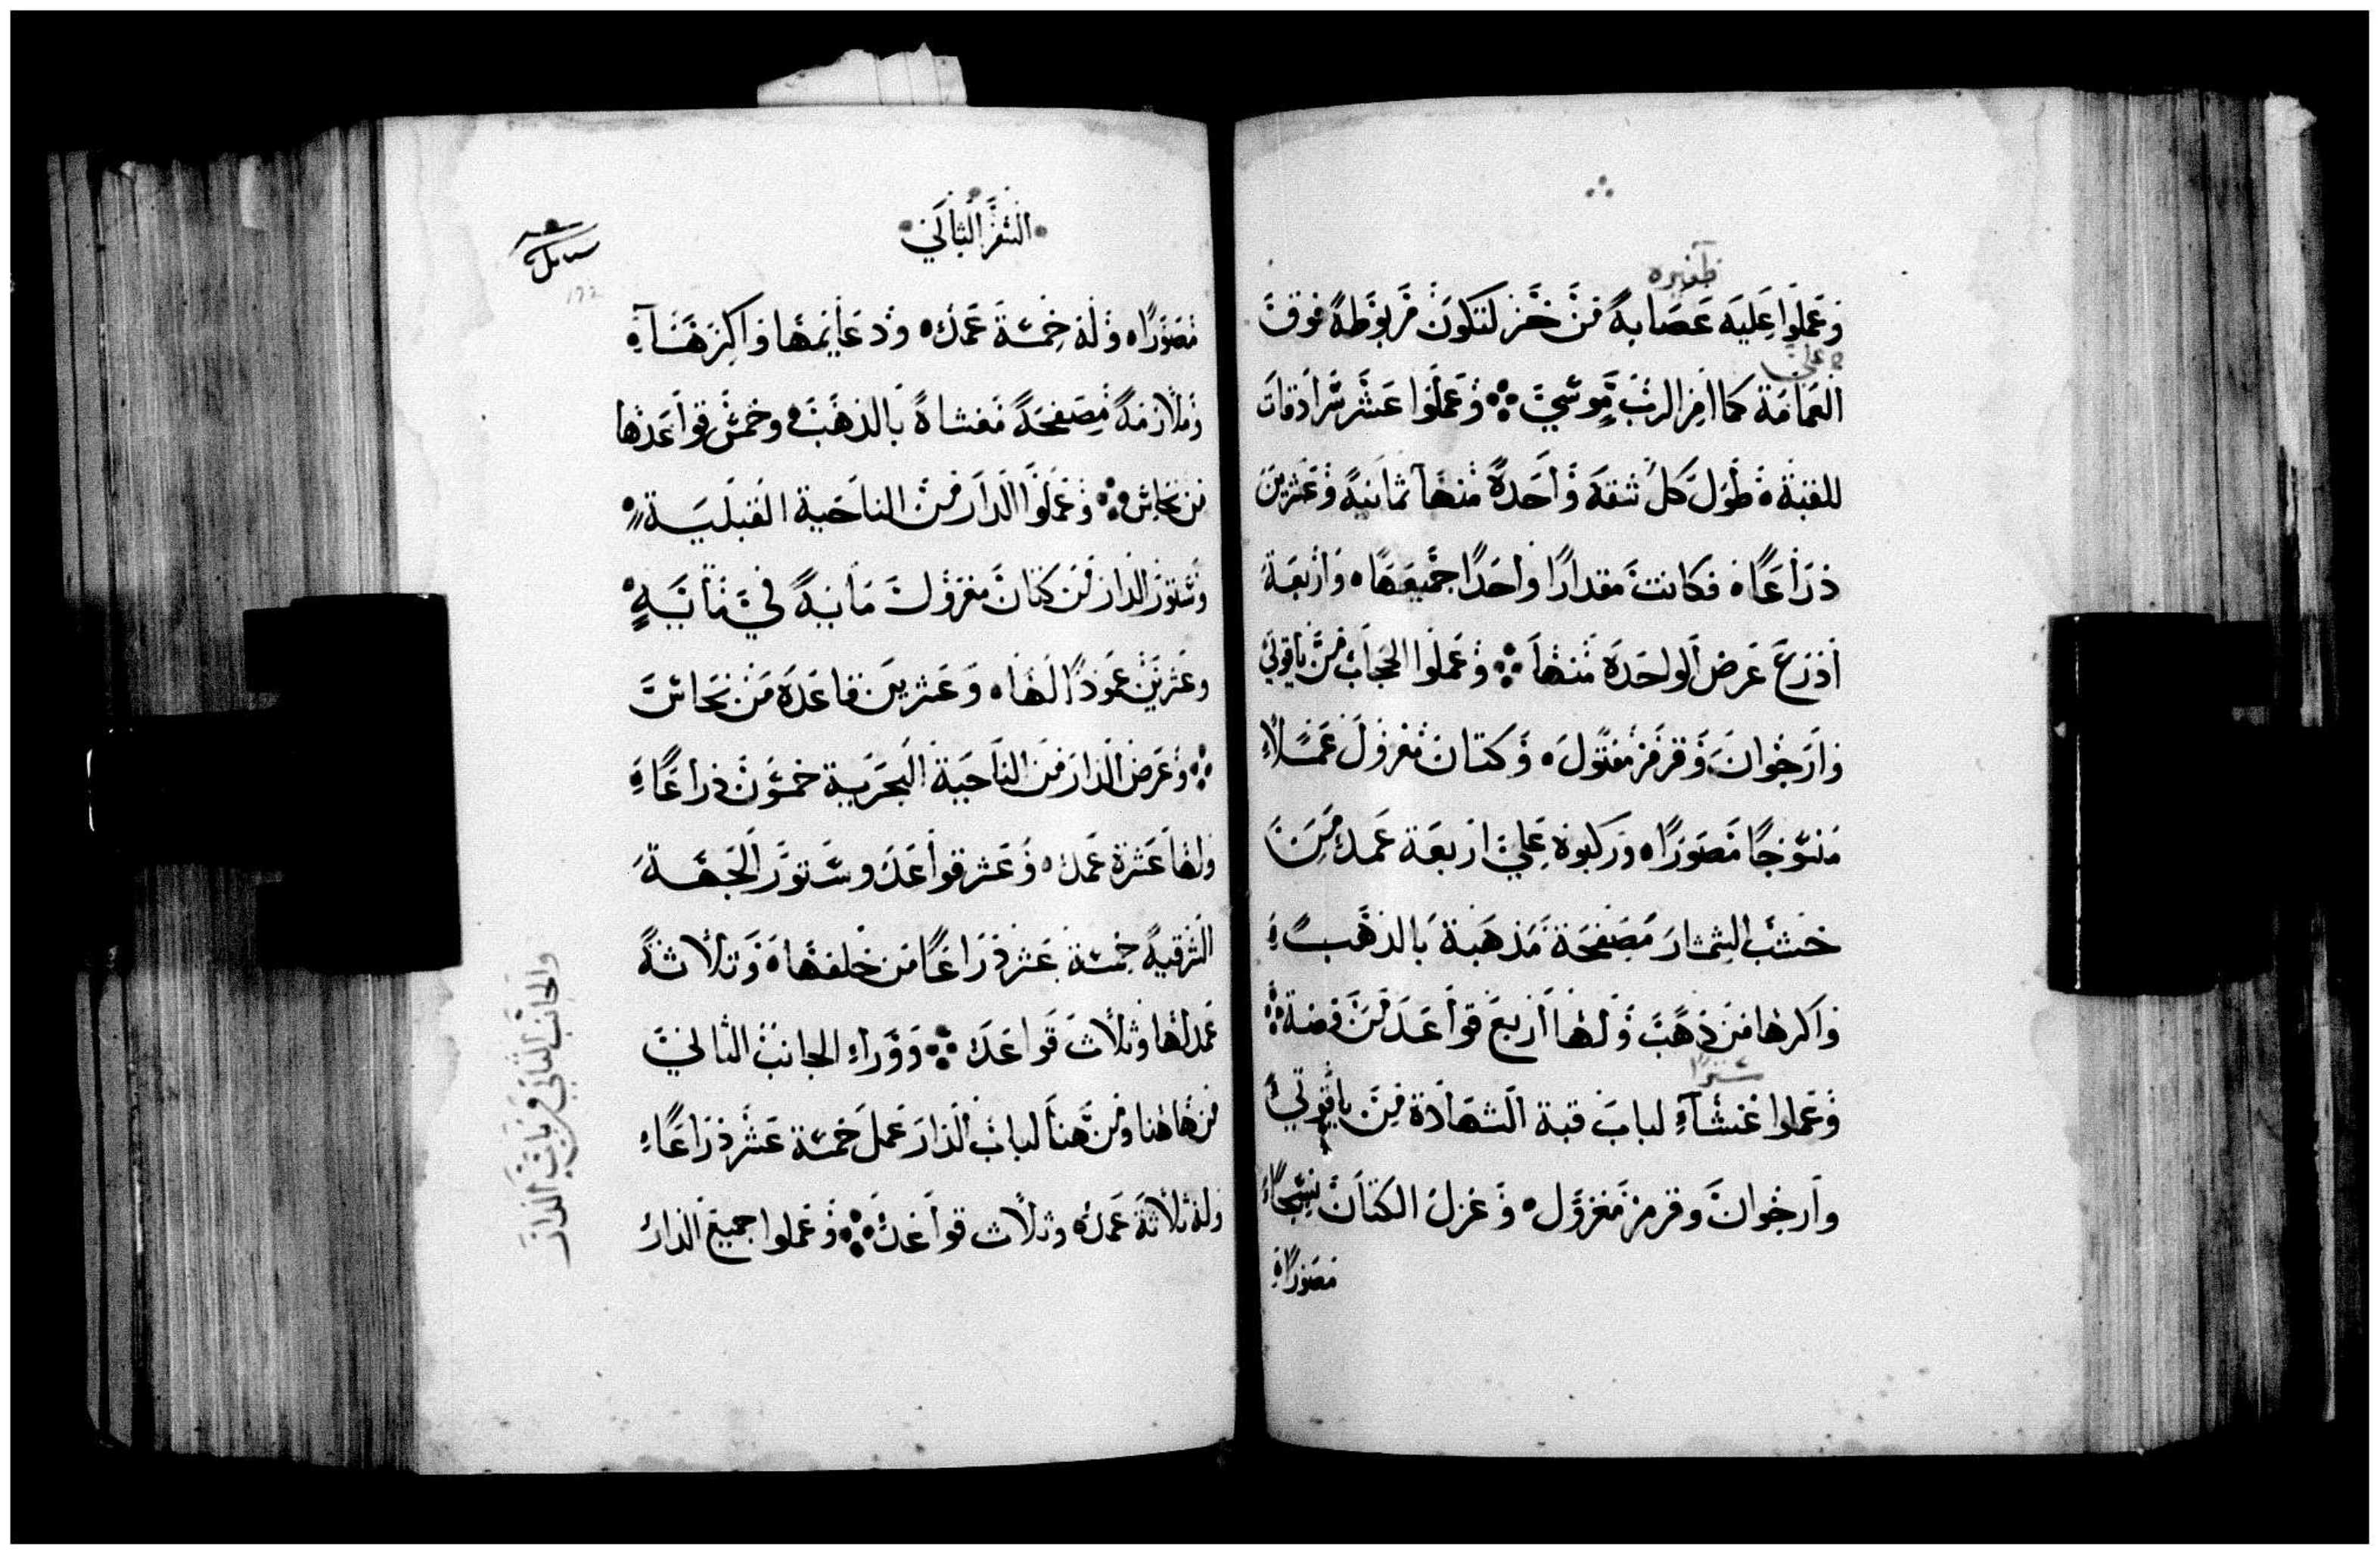 ظفيره
وعملوا عليه عصابة من خز لتكون مربوطة فوق
على
العمامة كما امر الرب موسي ∴ وعملوا عشر سرادقات
للقبة ٥ طول كل شقة واحدة منها ثمانية وعشرين
ذراعًا ٥ فكانت مقدارًا واحدًا جميعها ٥ واربعة
اذرع عرض الواحدة منها ∴ وعملوا الحجاب من ياقوتي
وارجوان وقرمز مفتول ٥ وكتان مغزول عملاً
منسوجًا مصورًا ٥ وركبوه علي اربعة عمد من
خشب الشمشار مصفحة مذهبة بالذهب
واكرها من ذهب ولها اربع قواعد من فضة ∴
سترًا
وعملوا غشآء لباب قبة الشهادة من ياقوتي
وارجوان وقرمز مغزول ٥ وغزل الكتان نسجًا
مصورًا
السفر الثاني
مصورًا ٥ وله خمسة عمد ٥ ودعايمها واكرهنا
وملازمة مصفحة مغشاة بالذهب ٥ وخمس قواعدها
من نحاس ∴ وعملوا الدار من الناحية القبلية
وستور الدار من كتان مغزول مانية في ثمانية
وعشرين عمودًا لها ٥ وعشرين قاعدة من نحاس
∴ وعرض الدار من الناحية البحرية خمسون ذراعًا
ولها عشرة عمد ٥ وعشر قواعد وستور الجهة
الشرقية خمسة عشر ذراعًا من خلفها ٥ وثلاثة
عمدلها وثلاث قواعد ∴ ووراء الجانب الثاني
من هاهنا ومن هنا لباب الدار عمل خمسة عشر ذراعًا
وله ثلاثة عمد ٥ وثلاث قواعد ∴ وعملوا جميع الدار
والجانب الثاني وباب الدار